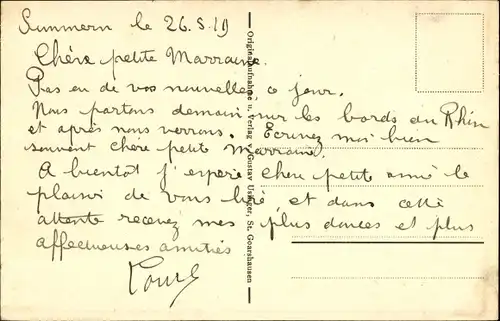 Simmern le 26.8.19
Chère petite Marraine.
Pas eu de vos nouvelles ce jour.
Nous partons demain sur les bords du Rhin
et après nous verrons. Ecrivez moi bien
souvent chère petite Marraine.
A bientôt j'espère chère petite amie le
plaisir de vous lire, et dans cette
attente recevez mes plus douces et plus
affectueuses amitiés
Originalaufnahme u. Verlag v. Gustav Usinger, St. Goarshausen